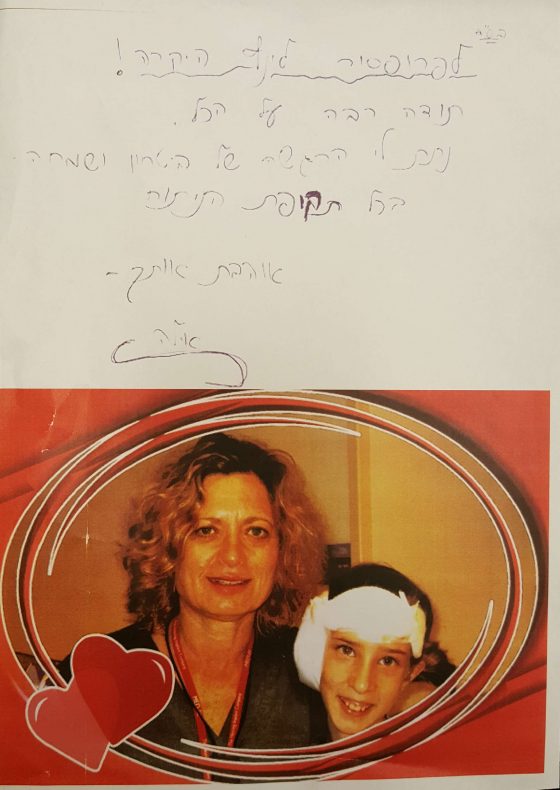 בס"ד
לפרופסור לינק היקרה!
תודה רבה על הכל.
נתת לי הרגשה של בטחון ושמחה
בכל תקופת הניתוח
אוהבת אותך -
אילה